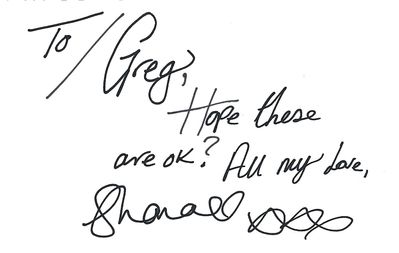 To/ Greg,
Hope these
are ok? All my love,
xxx